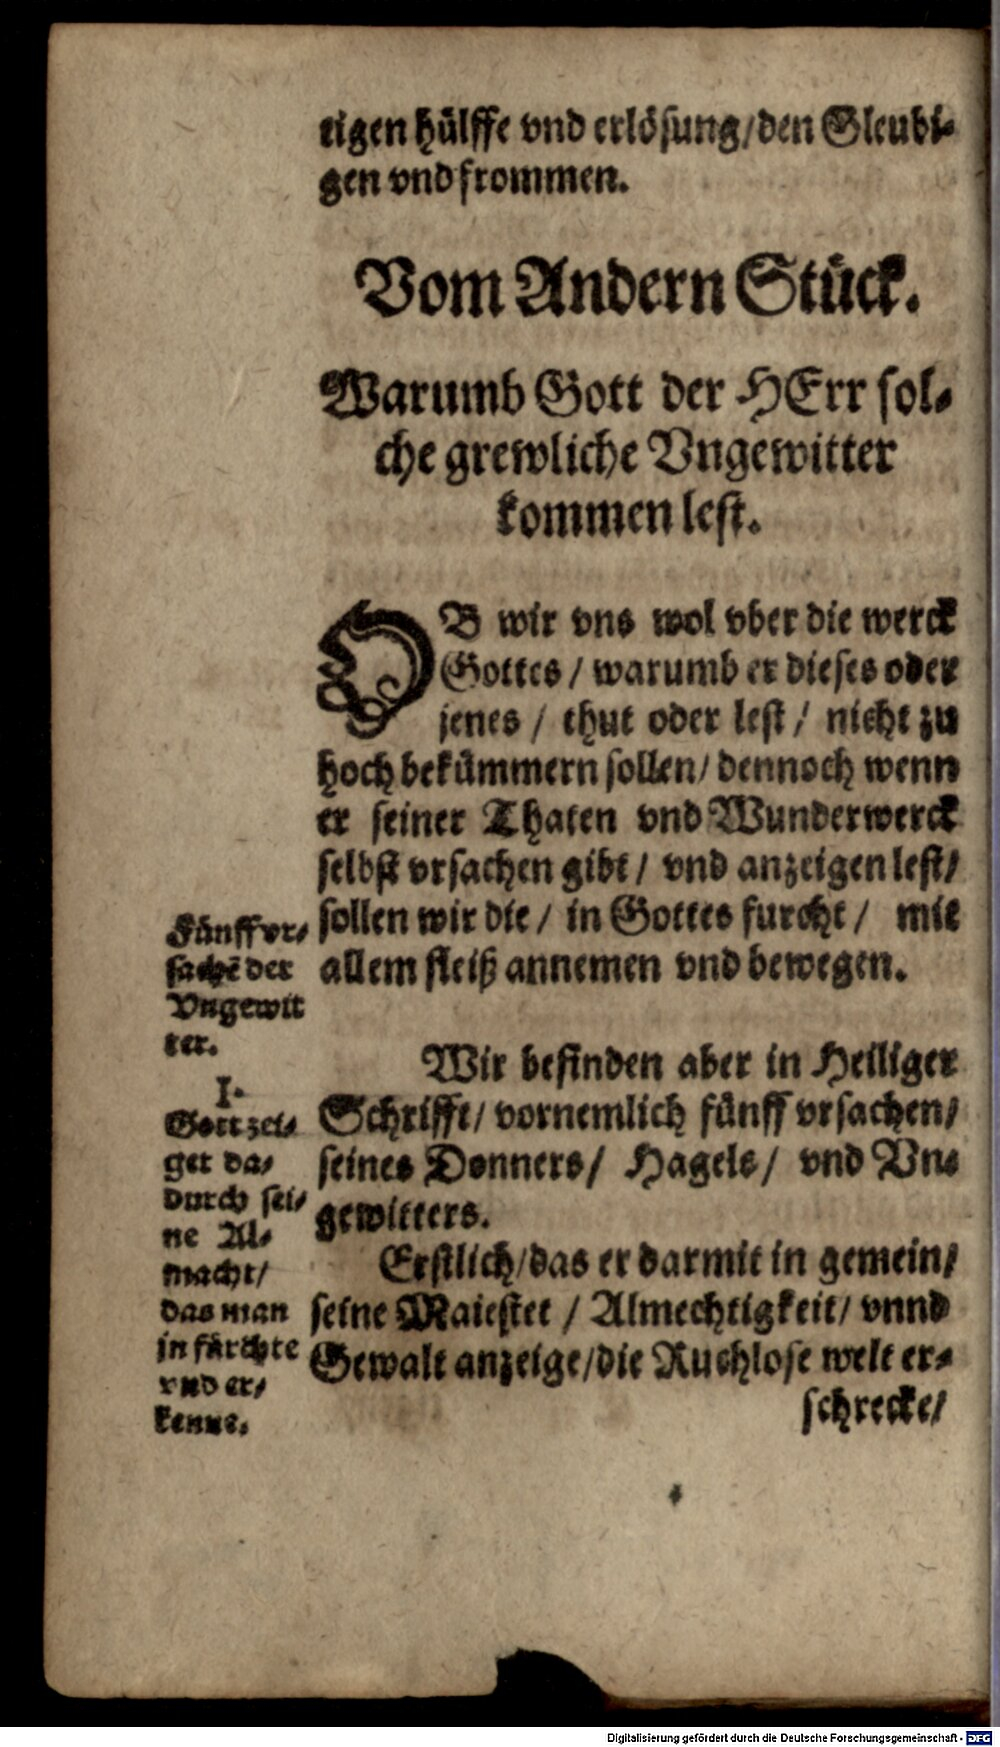 tigen hülffe vnd erlösung/den Gleubi-
gen vnd frommen.
Vom Andern Stück.
Warumb Gott der HErr sol-
che grewliche Vngewitter
kommen lest.
OB wir vns wol vber die werck
Gottes / warumb er dieses oder
jenes / thut oder lest / nicht zu
hoch bekümmern sollen/ dennoch wenn
er seiner Thaten vnd Wunderwerck
selbst vrsachen gibt / vnd anzeigen lest/
sollen wir die / in Gottes furcht / mit
allem fleiß annemen vnd bewegen.
Fünff vr-
sachē der
Vngewit
ter.
Wir befinden aber in Heiliger
Schrifft/ vornemlich fünff vrsachen/
seines Donners/ Hagels/ vnd Vn-
gewitters.
I.
Gott zei-
get da-
durch sei-
ne Al-
macht/
das man
jn fürchte
vnd er-
kenne.
Erstlich/das er darmit in gemein/
seine Maiestet / Almechtigkeit/ vnnd
Gewalt anzeige/die Ruchlose welt er-
schrecke/
Digitalisierung gefördert durch die Deutsche Forschungsgemeinschaft - DFG